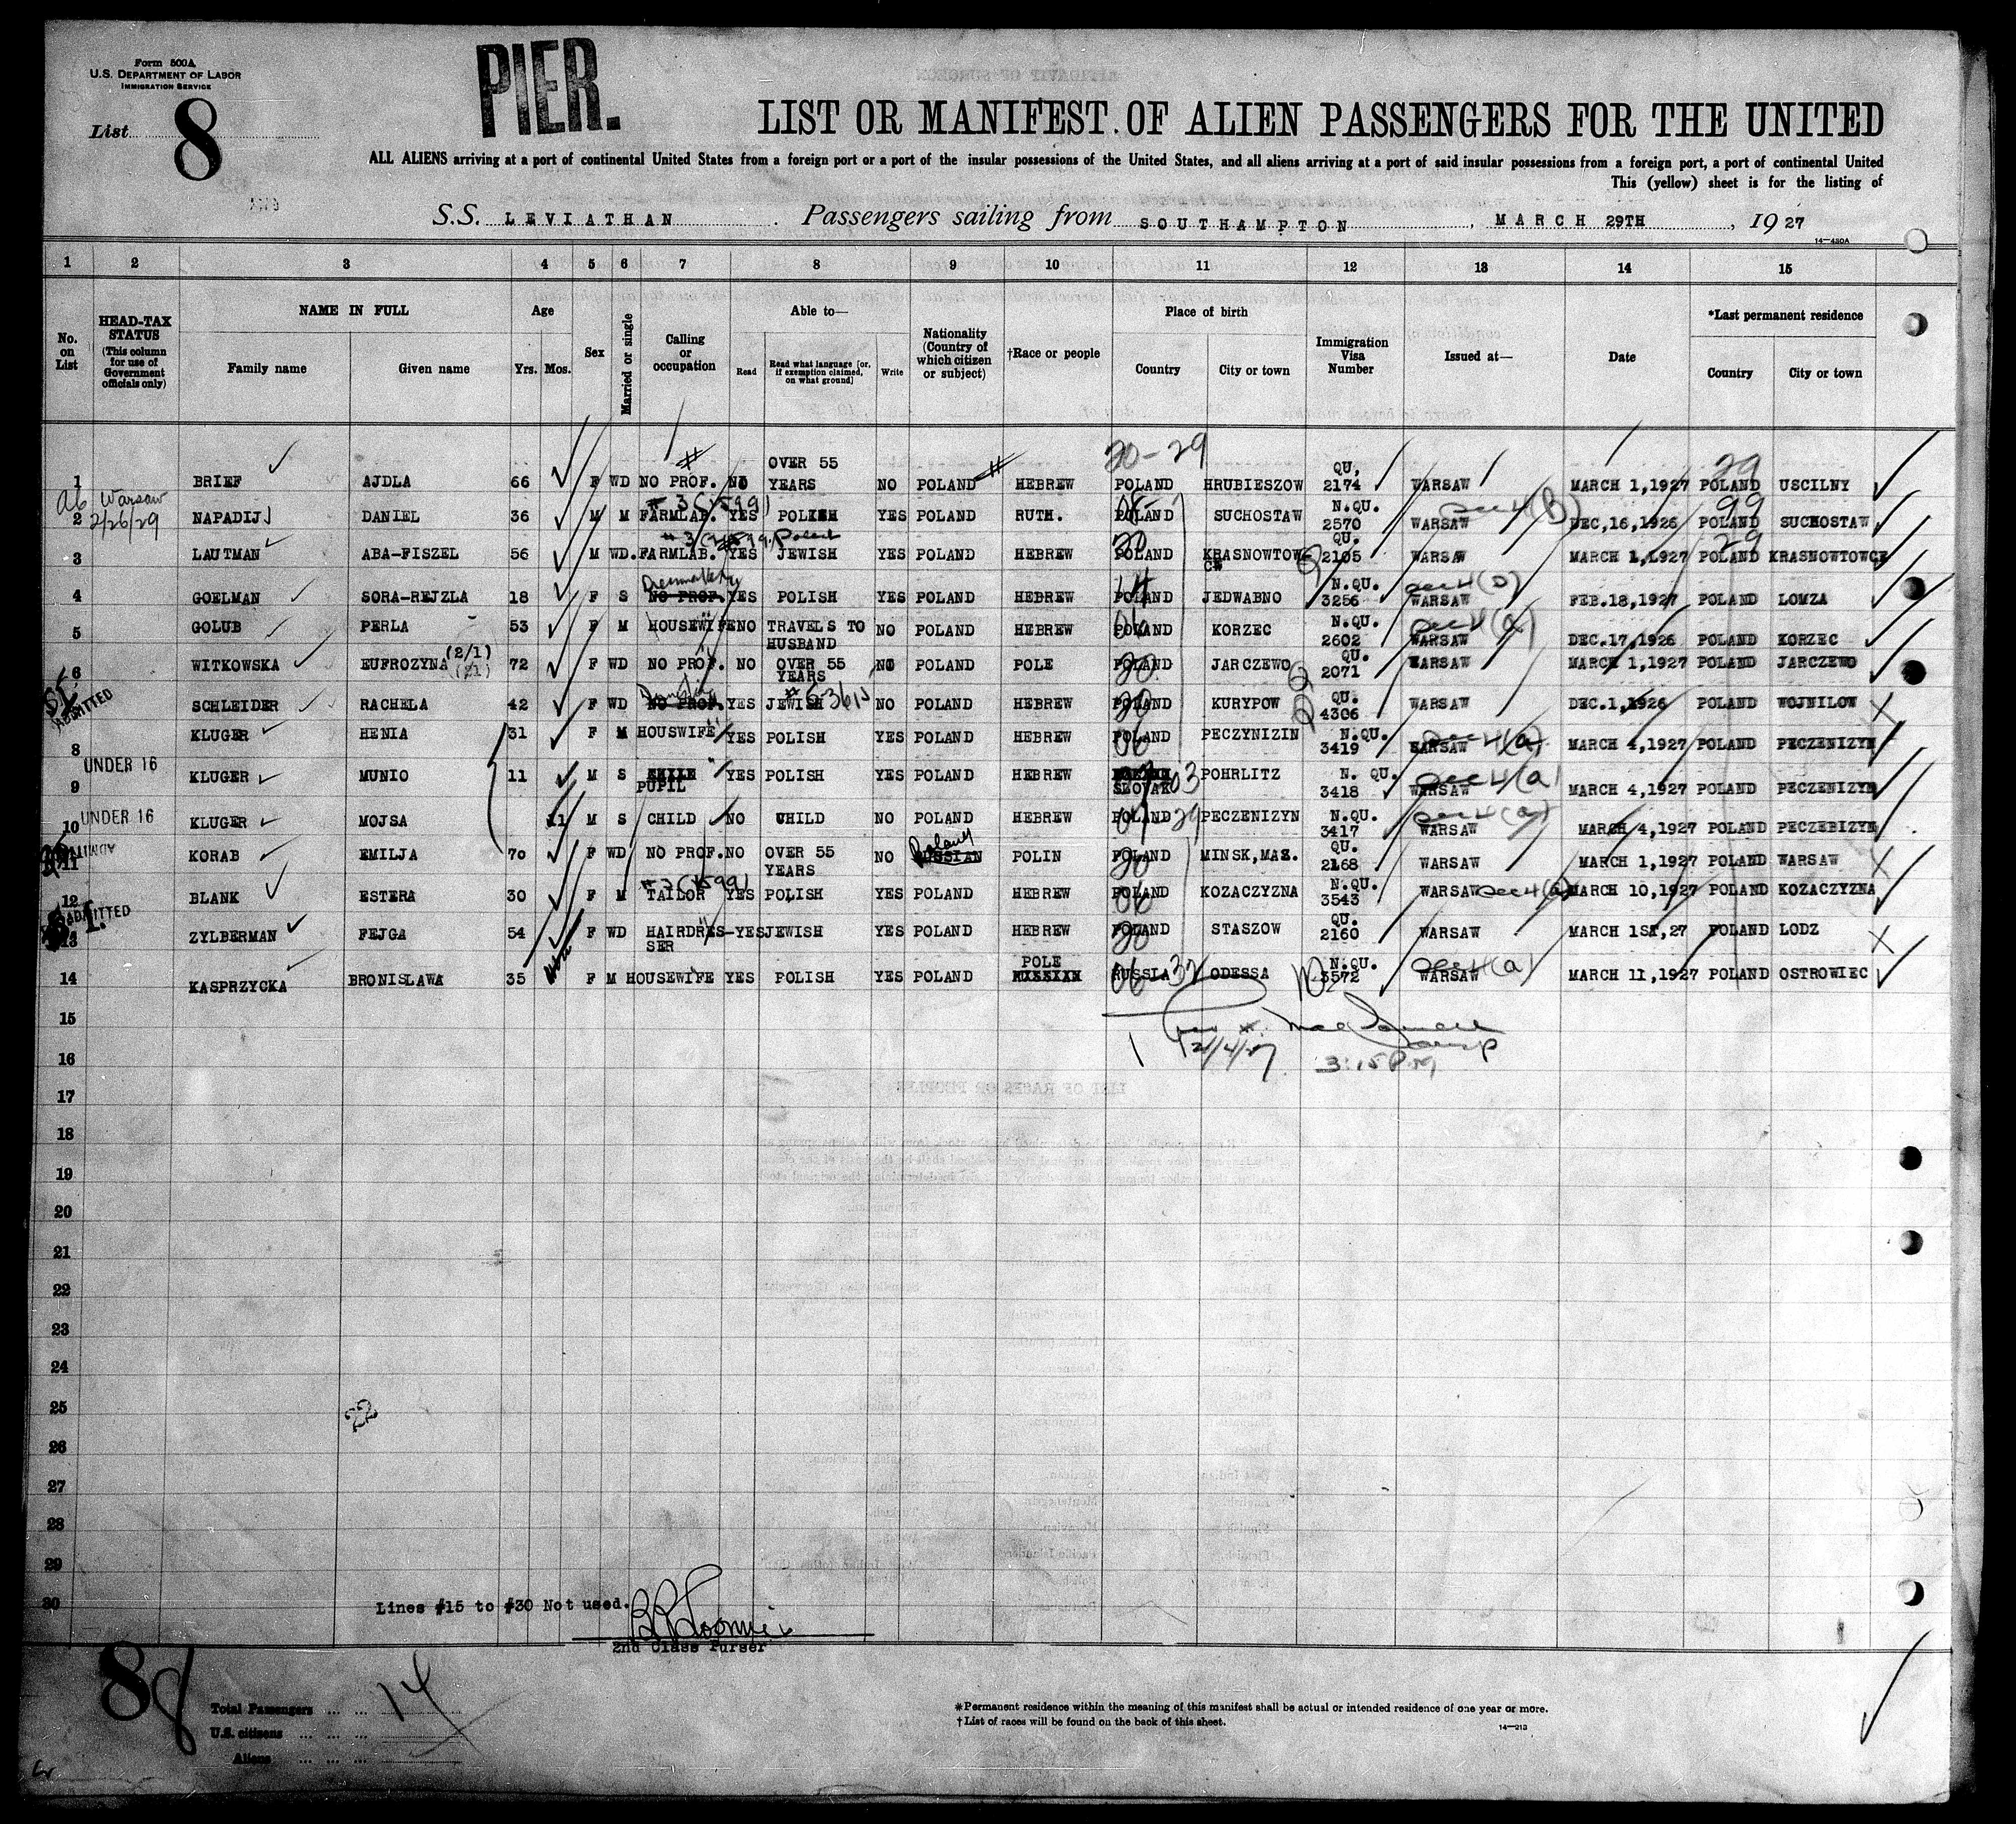 Form 500A
U.S. DEPARTMENT OF LABOR
IMMIGRATION SERVICE
PIER.
List 8
LIST OR MANIFEST OF ALIEN PASSENGERS FOR THE UNITED
ALL ALIENS arriving at a port of continental United States from a foreign port or a port of the insular possessions of the United States, and all aliens arriving at a port of said insular possessions from a foreign port, a port of continental United
This (yellow) sheet is for the listing of
S.S. LEVIATHAN . Passengers sailing from SOUTHAMPTON , MARCH 29TH , 19 27
14—430A
1 2 3 4 5 6 7 8 9 10 11 12 13 14 15
No. on List
HEAD-TAX STATUS (This column for use of Government officials only)
NAME IN FULL
Family name Given name
Age
Yrs. Mos.
Sex
Married or single
Calling or occupation
Able to—
Read
Read what language [or, if exemption claimed, on what ground]
Write
Nationality (Country of which citizen or subject)
†Race or people
Place of birth
Country City or town
Immigration Visa Number
Issued at—
Date
*Last permanent residence
Country City or town
20-29 29
1 BRIEF AJDLA 66 F WD NO PROF. NO OVER 55 YEARS NO POLAND HEBREW POLAND HRUBIESZOW QU, 2174 WARSAW MARCH 1,1927 POLAND USCILNY
Warsaw 2/26/29
2 NAPADIJ DANIEL 36 M M FARMLAB. YES POLISH YES POLAND RUTH. POLAND SUCHOSTAW N.QU. 2570 WARSAW sec 4(B) DEC,16,1926 99 POLAND SUCHOSTAW
3 LAUTMAN ABA-FISZEL 56 M WD. FARMLAB. YES JEWISH YES POLAND HEBREW 20 POLAND KRASNOWTOW QU. 2105 WARSAW MARCH 1,1927 29 POLAND KRASNOWTOWCE
4 GOELMAN SORA-REJZLA 18 F S NO PROF. YES POLISH YES POLAND HEBREW 14 POLAND JEDWABNO N.QU. 3256 WARSAW FEB.18,1927 POLAND LOMZA
5 GOLUB PERLA 53 F M HOUSEWIFE NO TRAVEL'S TO HUSBAND NO POLAND HEBREW 06 POLAND KORZEC N.QU. 2602 sec 4(a) WARSAW DEC.17,1926 POLAND KORZEC
6 WITKOWSKA EUFROZYNA (2/1) 72 F WD NO PROF. NO OVER 55 YEARS NO POLAND POLE 20 POLAND JARCZEWO QU. 2071 WARSAW MARCH 1,1927 POLAND JARCZEWO
ADMITTED SCHLEIDER RACHELA 42 F WD Domestic NO PROF. YES JEWISH NO POLAND HEBREW 20 POLAND KURYPOW QU. 4306 WARSAW DEC.1,1926 POLAND WOJNILOW
8 KLUGER HENIA 31 F M HOUSWIFE YES POLISH YES POLAND HEBREW 06 POLAND PECZYNIZIN N.QU. 3419 sec 4(a) WARSAW MARCH 4,1927 POLAND PECZENIZYN
9 UNDER 16 KLUGER MUNIO 11 M S PUPIL YES POLISH YES POLAND HEBREW SLOVAK POHRLITZ N. QU. 3418 sec 4(a) WARSAW MARCH 4,1927 POLAND PECZENIZYN
10 UNDER 16 KLUGER MOJSA 11 M S CHILD NO CHILD NO POLAND HEBREW POLAND PECZENIZYN N.QU. 3417 sec 4(a) WARSAW MARCH 4,1927 POLAND PECZEBIZYN
11 KORAB EMILJA 70 F WD NO PROF. NO OVER 55 YEARS NO Poland RUSSIAN POLIN 20 POLAND MINSK,MAZ. QU. 2168 WARSAW MARCH 1,1927 POLAND WARSAW
12 BLANK ESTERA 30 F M TAILOR YES POLISH YES POLAND HEBREW 06 POLAND KOZACZYZNA N.QU. 3543 WARSAW sec 4(a) MARCH 10,1927 POLAND KOZACZYZNA
13 ADMITTED ZYLBERMAN FEJGA 54 F WD HAIRDRES-SER YES JEWISH YES POLAND HEBREW 20 POLAND STASZOW QU. 2160 WARSAW MARCH 1ST,27 POLAND LODZ
14 KASPRZYCKA BRONISLAWA 35 F M HOUSEWIFE YES POLISH YES POLAND POLE RUSSIAN 06 RUSSIA 37 ODESSA N.QU. 3572 sec 4(a) WARSAW MARCH 11,1927 POLAND OSTROWIEC
15
16 3:15 PM
17
18
19
20
21
22
23
24
25
26
27
28
29
30 Lines #15 to #30 Not used.
2nd Class Purser
8
Total Passengers ... ... 14
U.S. citizens ... ... ...
Aliens ... ... ...
*Permanent residence within the meaning of this manifest shall be actual or intended residence of one year or more.
†List of races will be found on the back of this sheet.
14—213